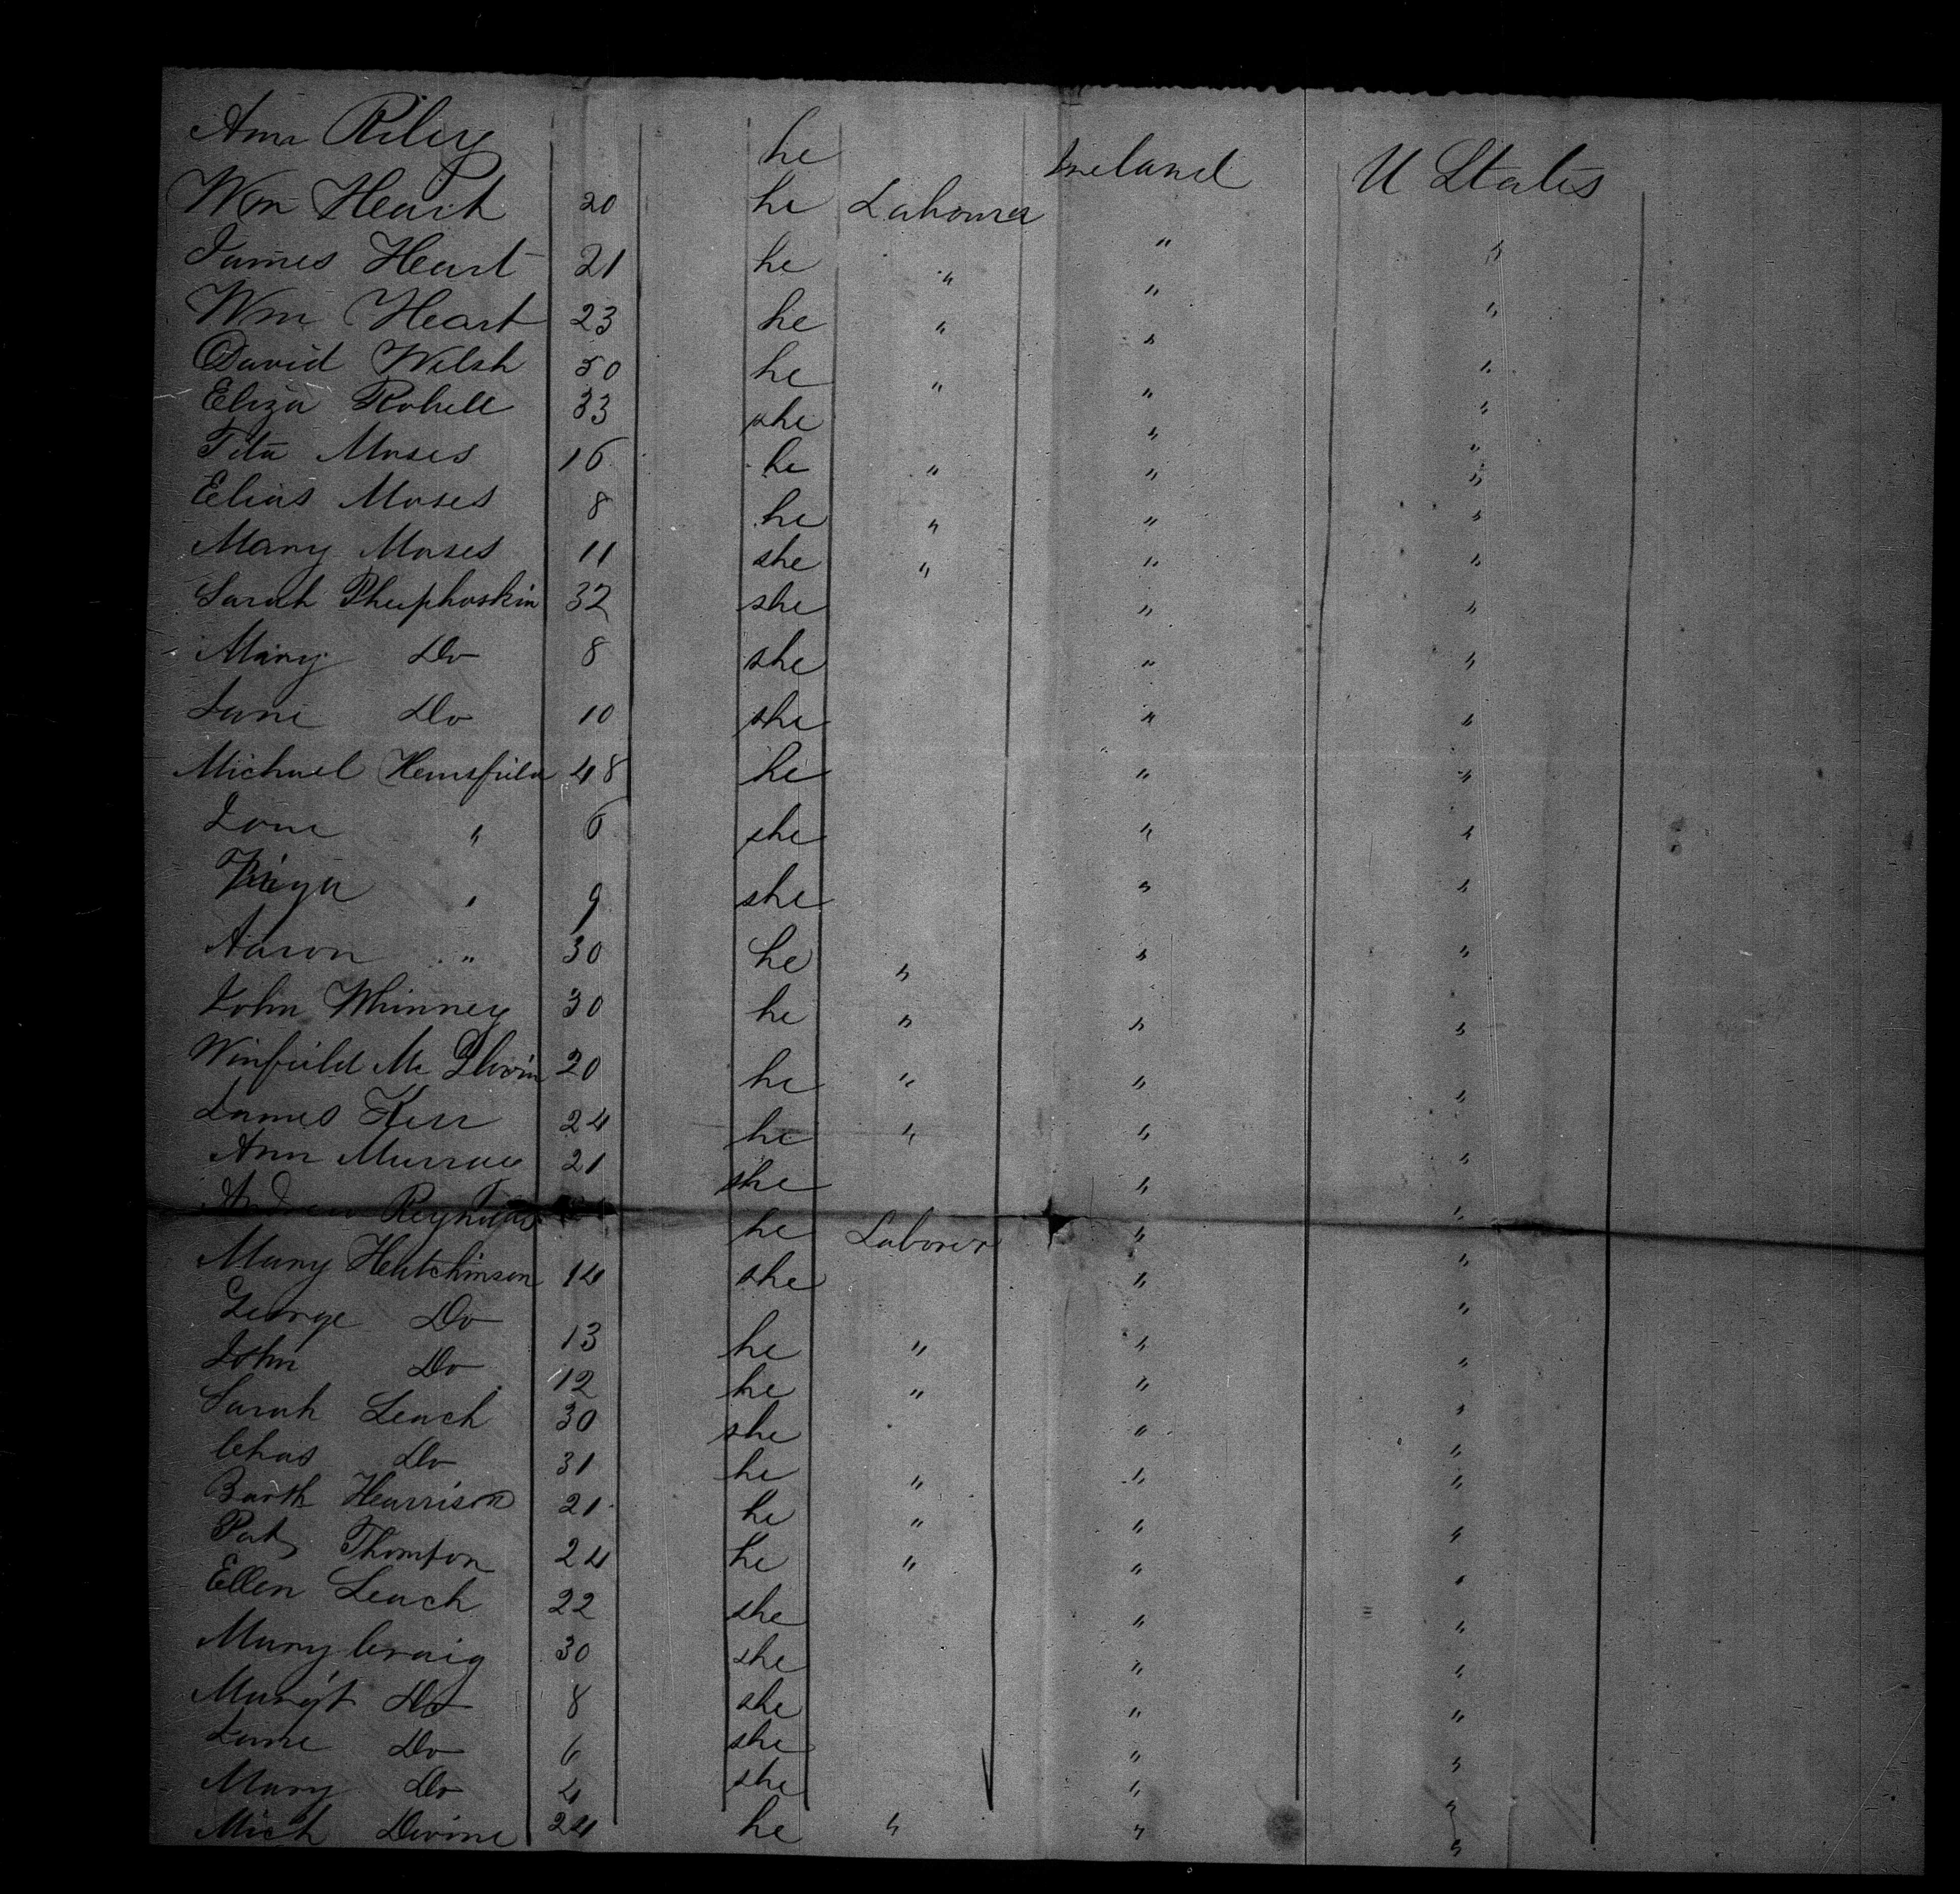 Ann Riley he Ireland U States
Wm Heart 20 he Labourer " "
James Heart 21 he " " "
Wm Heart 23 he " " "
David Welsh 50 he " " "
Eliza 33 she " "
Moses 16 he " " "
Elias Moses 8 he " " "
Mary Moses 11 she " " "
Sarah 32 she " "
Mary Do 8 she " "
Jane Do 10 she " "
Michael 48 he " "
" 6 she " "
" 9 she " "
Aaron " 30 he " " "
John Whinney 30 he " " "
Winfield Mc 20 he " " "
James Kerr 24 he " " "
Ann Murray 21 she " "
Andrew Reynolds he Laborer " "
Mary Hutchinson 14 she " "
George Do 13 he " " "
John Do 12 he " " "
Sarah Leach 30 she " "
Chas Do 31 he " " "
Barth Hearrison 21 he " " "
Pat Thompson 24 he " " "
Ellen Leach 22 she " "
Mary Craig 30 she " "
Margt Do 8 she " "
Jane Do 6 she " "
Mary Do 4 she " "
Mich Devine 24 he " " "